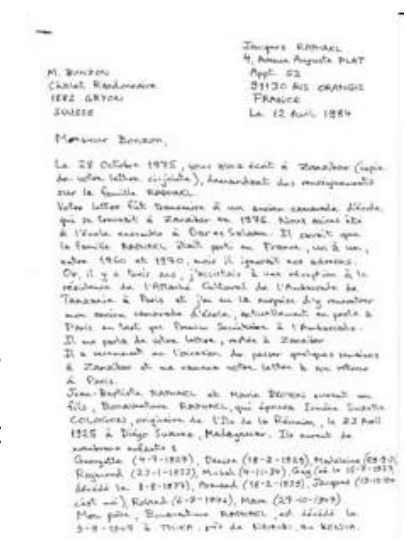 Jacques RAPHAEL
4, Avenue Auguste PLAT
Appt. 52
91130 RIS ORANGIS
FRANCE
Le 12 Avril 1984
M. BONZON
Chalet Randonnaire
1882 GRYON
SUISSE
Monsieur Bonzon,
Le 28 Octobre 1975, vous avez écrit à Zanzibar (copie
de votre lettre ci-jointe), demandant des renseignements
sur la famille RAPHAEL.
Votre lettre fût transmise à un ancien camarade d'école
qui se trouvait à Zanzibar en 1975. Nous avions été
à l'école ensemble à Dar es Salaam. Il savait que
la famille RAPHAEL était parti en France, un à un,
entre 1960 et 1970, mais il ignorait nos adresses.
Or, il y a trois ans, j'assistais à une réception à la
résidence de l'Attaché Culturel de l'Ambassade de
Tanzanie à Paris et j'ai eu la surprise d'y rencontrer
mon ancien camarade d'école, actuellement en poste à
Paris en tant que Premier Secrétaire à l'Ambassade.
Il me parla de votre lettre, restée à Zanzibar
Il a récemment eu l'occasion de passer quelques semaines
à Zanzibar et me ramena votre lettre à son retour
à Paris.
Jean-Baptiste RAPHAEL et Marie avaient un
fils, Bonaventure RAPHAEL, qui épousa Suzette
COLOGON, originaire de l'Ile de la Réunion, le 22 Avril
1925 à Diégo Suarez, Madagascar. Ils eurent de
nombreux enfants :
Georgette, Denise (18-2-1929), Madeleine
Raymond (27-1-1932), Michel (4-11-34), Guy
décédé le 8-8-1937), Armand (18-2-1939), Jacques
c'est moi), Roland, Marc (29-10-1947)
Mon père, Bonaventure RAPHAEL, est décédé le
à THIKA, près de Nairobi, au KENYA.